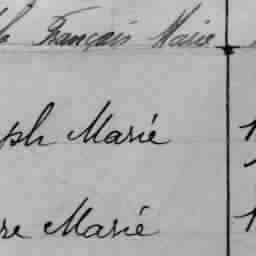 François Marie
ph Marié
re Marié